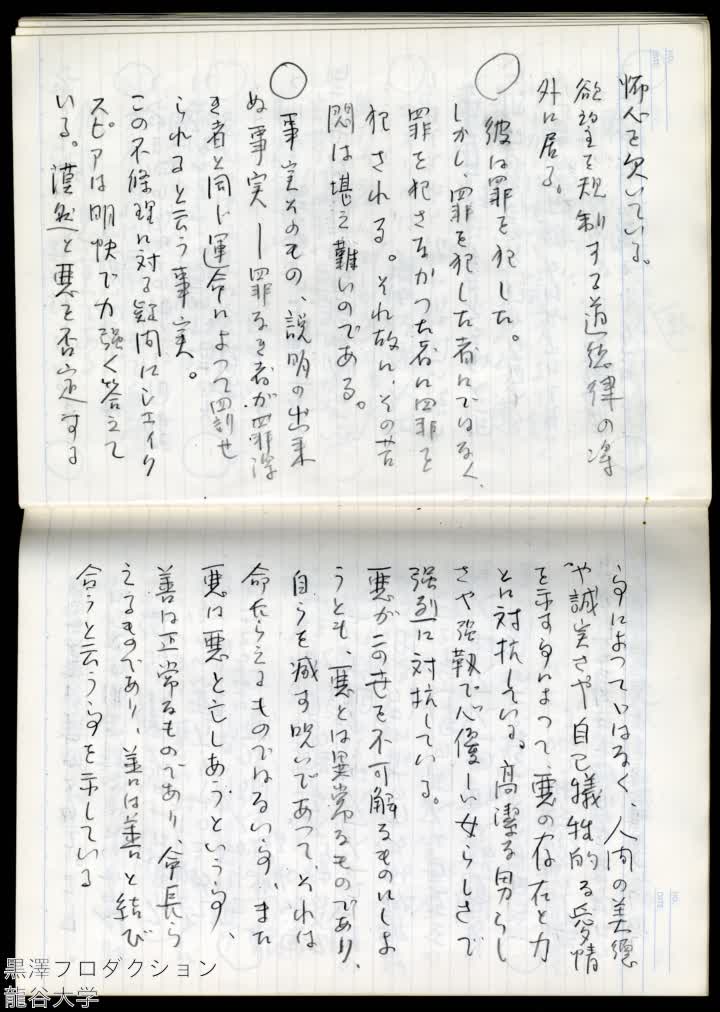 怖心を欠いている。
欲望を規制する道徳律の埒
外に居る。
○ 彼は罪を犯した。
しかし、罪を犯した者にではなく、
罪を犯さなかつた者に罪を
犯される。それ故に、その苦
悶は堪え難いのである。
○ 事実そのもの、説明の出来
ぬ事実——罪なき者が罪深
き者と同じ運命によつて罰せ
られると云う事実。
この不條理に対る疑問にシェイク
スピアは明快で力強く答えて
いる。漠然と悪を否定する
事によつてではなく、人間の美徳
や誠実さや自己犠牲的る愛情
を示す事によつて、悪の存在と力
とに対抗している。高潔る男らし
さや強靱で心優しい女らしさで
強烈に対抗している。
悪がこの世を不可解るものにしよ
うとも、悪とは異常るものであり、
自らを滅す呪いであつて、それは
命ながらえるものではない事、また
悪は悪と亡しあうという事、
善は正常るものであり、命長ら
えるものであり、善は善と結び
合うと云う事を示している
黒澤プロダクション
龍谷大学